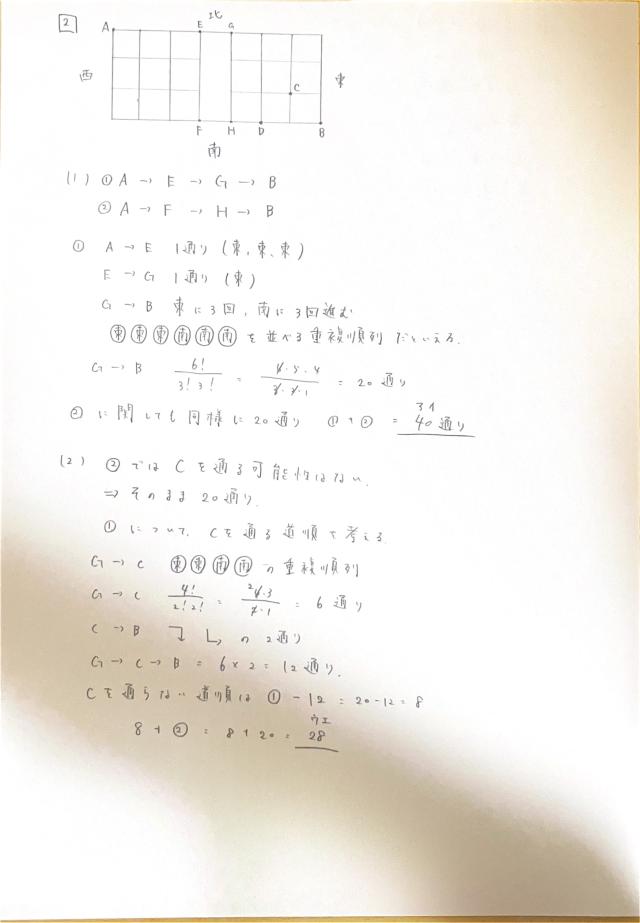 2
北
A E G
西 C 東
F H D B
南
(1) ① A → E → G → B
② A → F → H → B
① A → E 1通り (東, 東, 東)
E → G 1通り (東)
G → B 東に3回, 南に3回進む
東 東 東 南 南 南 を並べる重複順列だといえる.
G → B 6!/3!3! = 6・5・4/3・2・1 = 20通り
② に関しても同様に20通り ① + ② = 40通り
(2) ② では C を通る可能性はない.
⇒ そのまま 20通り.
① について, C を通る道順で考える.
G → C 東 東 南 南 の重複順列
G → C 4!/2!2! = 4・3/2・1 = 6通り
C → B の 2通り
G → C → B = 6 × 2 = 12通り.
C を通らない道順は ① - 12 = 20 - 12 = 8
ウエ
8 + ② = 8 + 20 = 28